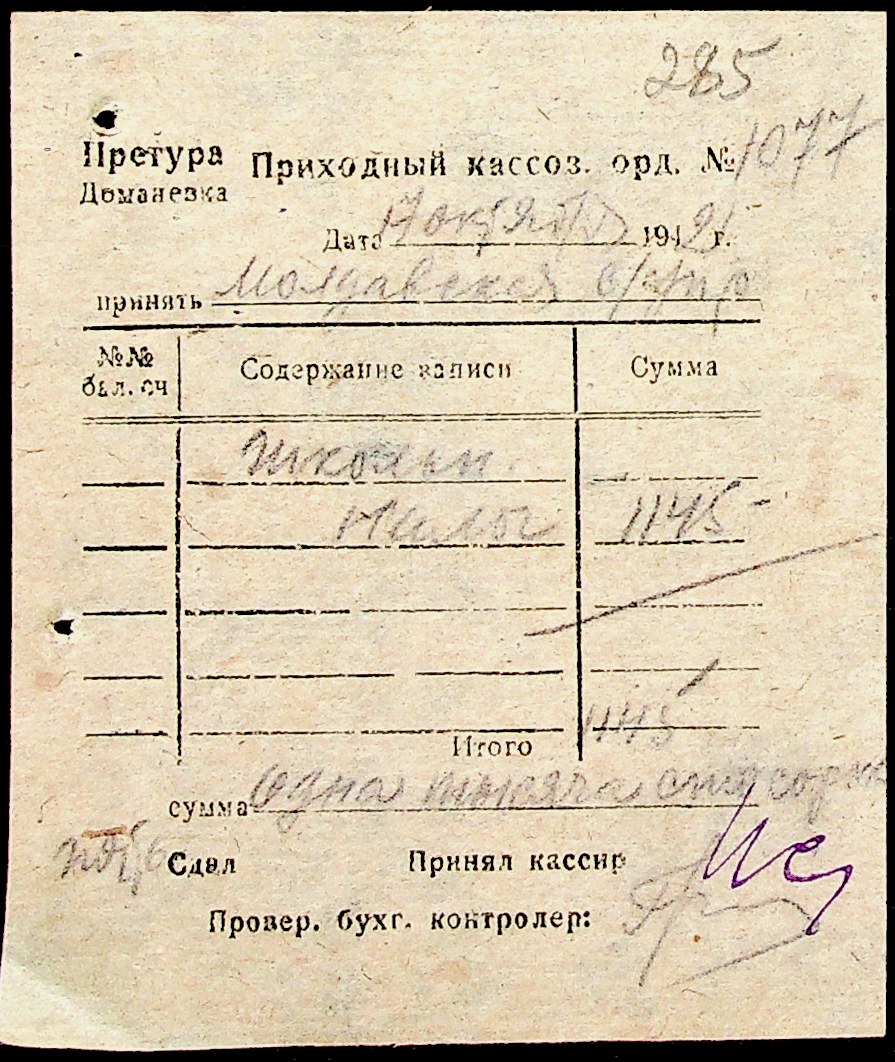 285
Претура Приходный кассов. орд. № 1077
Доманевка
Дата 17 октября 1942 г.
принять Молдавская
№№ бал. сч Содержание записи Сумма
Школьн.
налог 1145-
Итого 1145
сумма Одна тысяча сто сорок
Сдал Принял кассир
Провер. бухг. контролер: